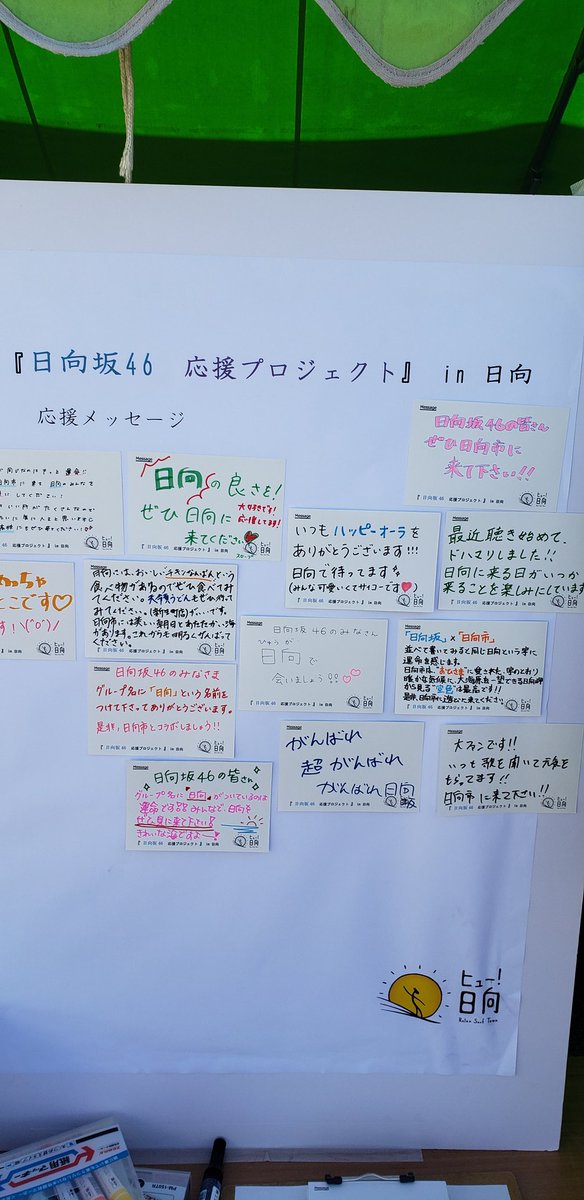 『日向坂46 応援プロジェクト』 in 日向
応援メッセージ
Message
日向坂46の皆さん
ぜひ日向市に
来て下さい!!
『日向坂46 応援プロジェクト』 in 日向
Message
日向の良さを!
ぜひ日向に
来てください
大好きです!
応援してます!
『日向坂46 応援プロジェクト』 in 日向
Message
いつもハッピーオーラを
ありがとうございます!!!
日向で待ってます
(みんな可愛いくてサイコーです♥)
『日向坂46 応援プロジェクト』 in 日向
Message
最近聴き始めて、
ドハマりしました!!
日向に来る日がいつか
来ることを楽しみにしています
『日向坂46 応援プロジェクト』 in 日向
Message
日向には、おいしいチキンなんばんという
食べ物があるのでぜひ食べてみ
てください。
日向市には美しい朝日とあたたかい海
があります。これからも明るくがんばって
ください。
Message
日向坂46のみなさん
ひゅうが
日向で
会いましょう!!
『日向坂46 応援プロジェクト』 in 日向
Message
「日向坂」×「日向市」
並べて書いてみると同じ日向という字に
運命を感じます。
日向市は、"おひさま"に愛された、字のとおり
暖かな気候に、大海原を一望できる日向岬
から見る"空色"は最高です!!
是非、日向市に遊びに来てください。
『日向坂46 応援プロジェクト』 in 日向
Message
日向坂46のみなさま
グループ名に「日向」という名前を
つけて下さってありがとうございます。
是非、日向市とコラボしましょう!!
『日向坂46 応援プロジェクト』 in 日向
Message
がんばれ
超がんばれ
がんばれ日向坂
『日向坂46 応援プロジェクト』 in 日向
Message
大ファンです!!
いつも歌を聞いて元気を
もらってます!!
日向市に来て下さい!!
『日向坂46 応援プロジェクト』 in 日向
Message
日向坂46の皆さん
グループ名に日向がついているのは
運命です!!みんなで、日向を
ぜひ見に来て下さい!
きれいな海ですよー!
『日向坂46 応援プロジェクト』 in 日向
ヒュー!
日向
Relax Surf Town
紙用マッキー